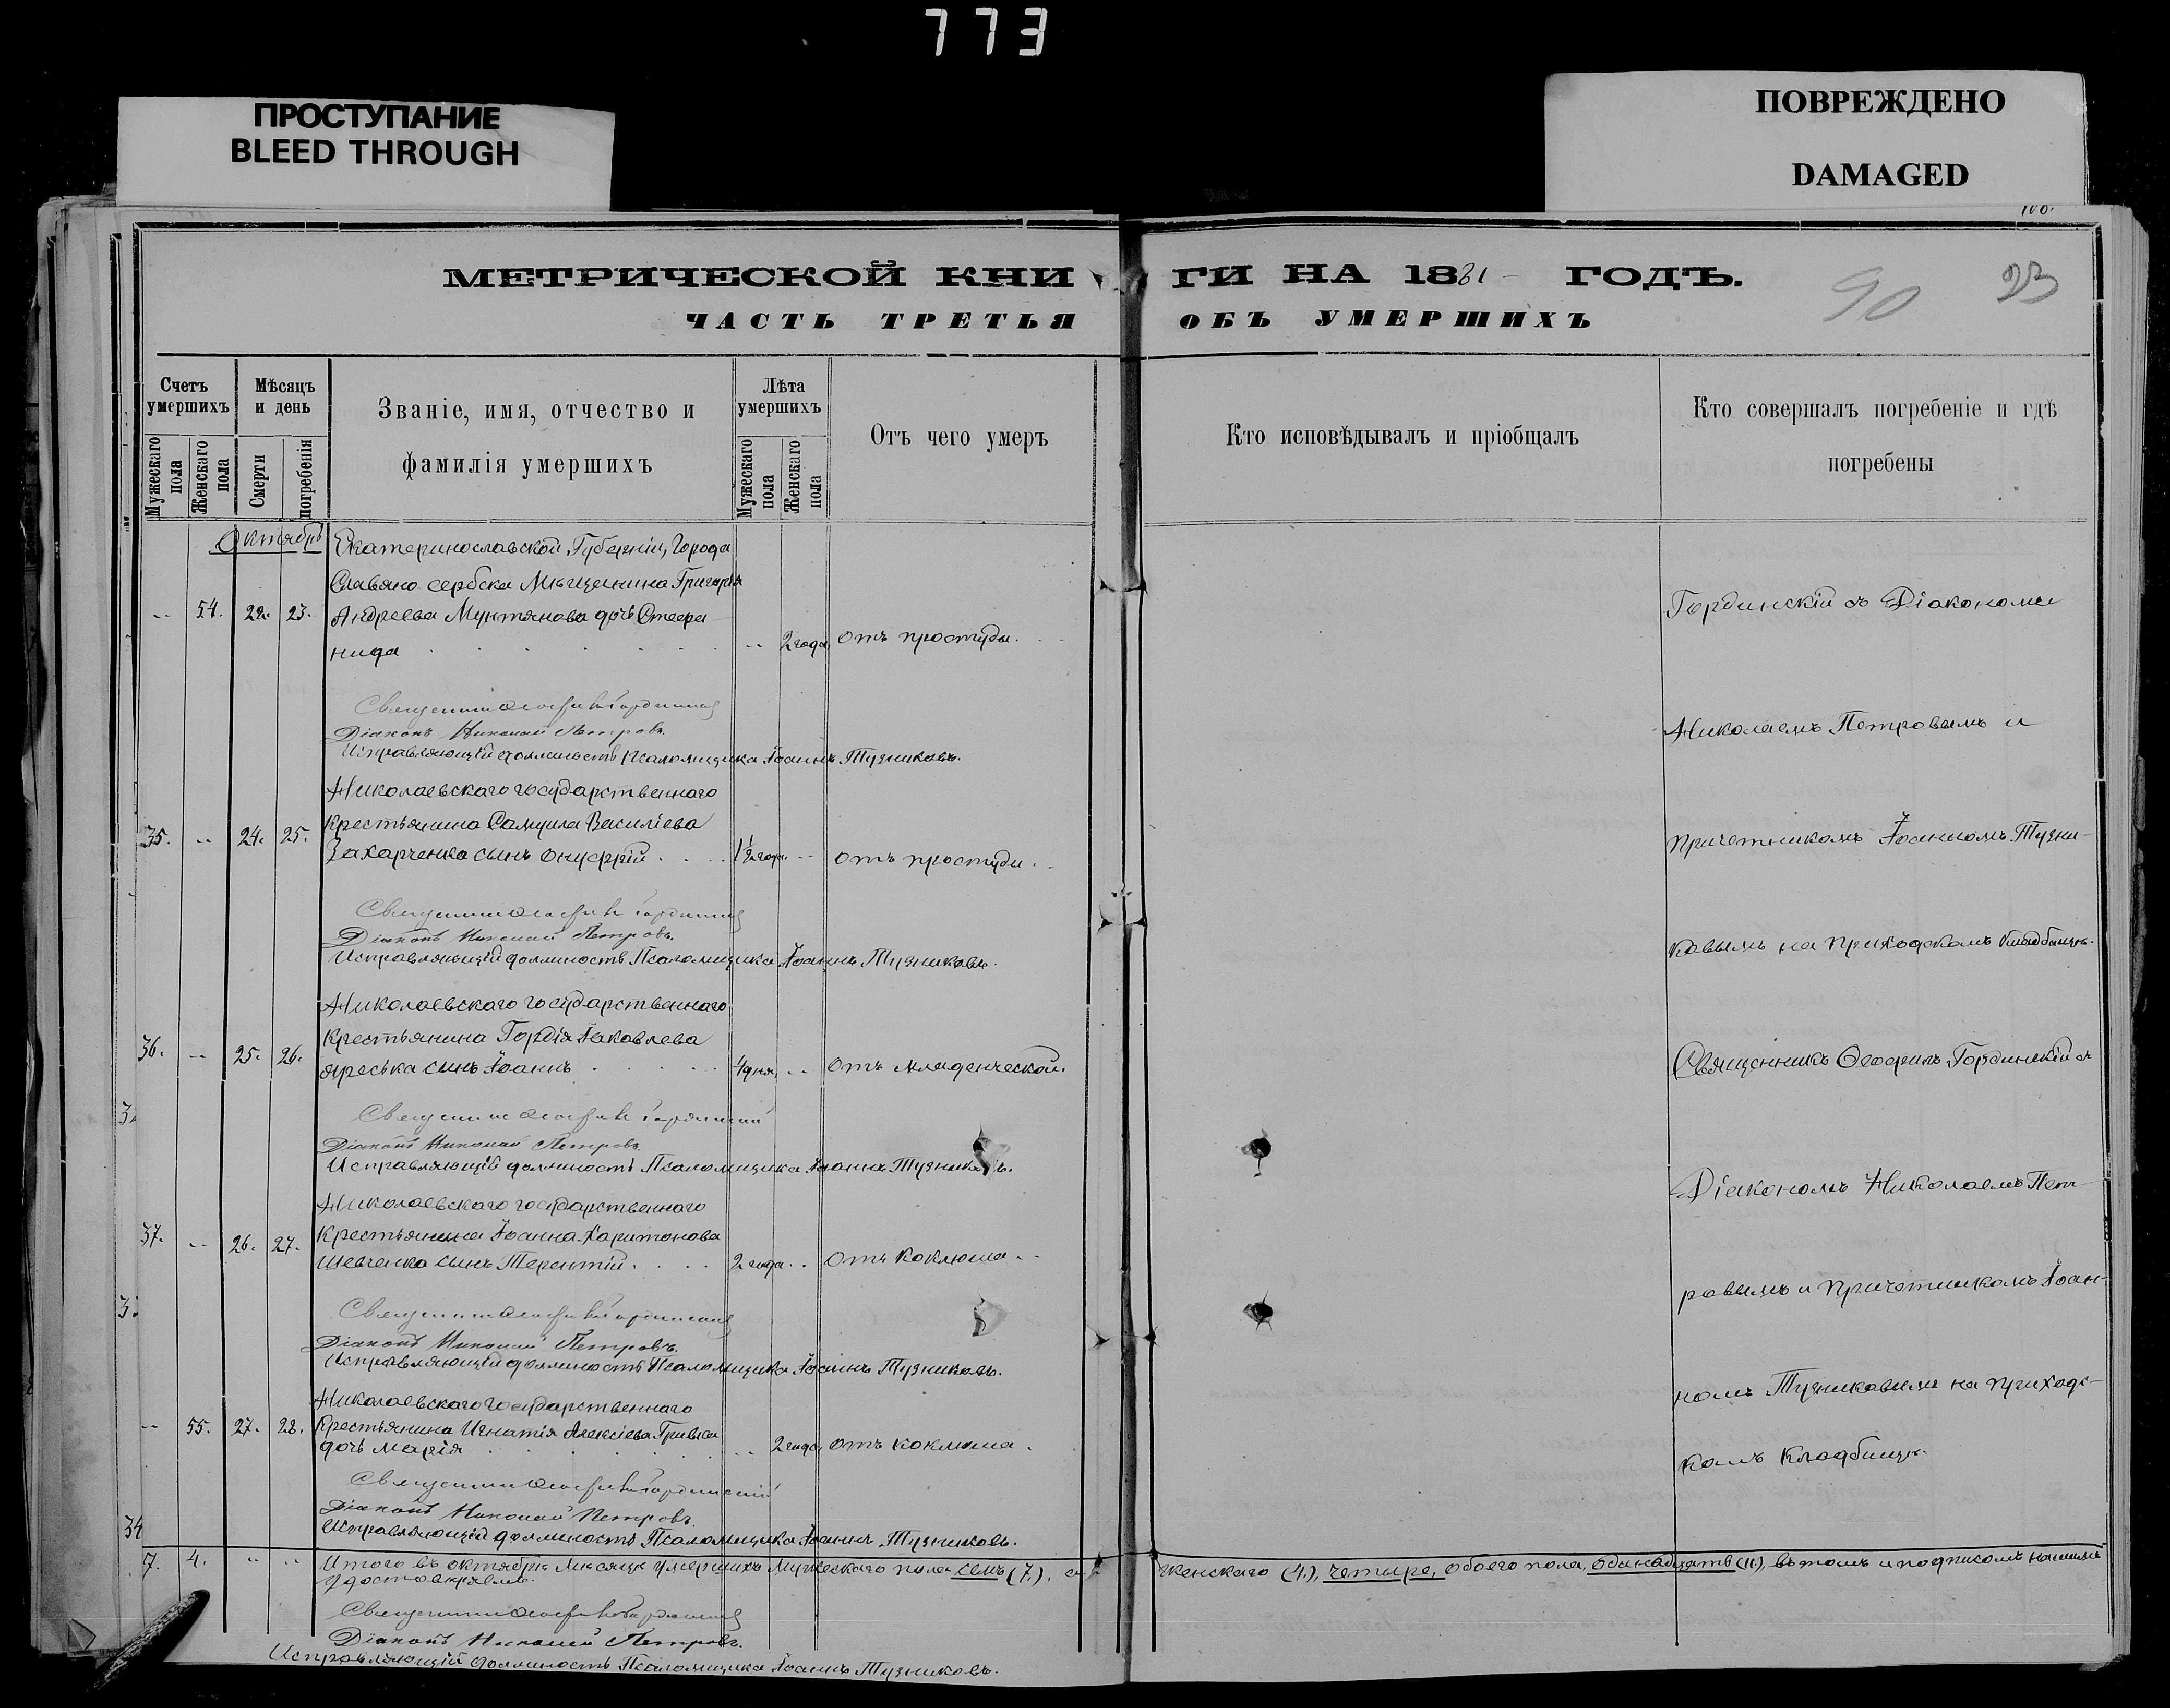 773
ПРОСТУПАНИЕ
BLEED THROUGH
ПОВРЕЖДЕНО
DAMAGED
МЕТРИЧЕСКОЙ КНИ ГИ НА 1881 ГОДЪ.
90
23
ЧАСТЬ ТРЕТЬЯ ОБЪ УМЕРШИХЪ
Счетъ умершихъ
Мужескаго пола
Женскаго пола
Мѣсяцъ и день
Смерти
погребенія
Званіе, имя, отчество и
фамилія умершихъ
Лѣта умершихъ
Мужескаго пола
Женскаго пола
Отъ чего умеръ
Кто исповѣдывалъ и пріобщалъ
Кто совершалъ погребеніе и гдѣ
погребены
Октябрь
Екатеринославской Губерніи, города
Славяно сербска Мѣщанина Григорія
-- 54. 22. 23. Андреева Мунтянова дочь Стефа
нида -- 2 года отъ простуды.
Священникъ Ѳеофилъ Гординскій
Діаконъ Николай Петровъ.
Исправляющій должность Псаломщика Іоаннъ Тузниковъ.
Николаевскаго государственнаго
Крестьянина Самуила Василіева
35. -- 24. 25. Захарченка сынъ Онуфрій 1½ года -- отъ простуды
Священникъ Ѳеофилъ Гординскій
Діаконъ Николай Петровъ.
Исправляющій должность Псаломщика Іоаннъ Тузниковъ.
Николаевскаго государственнаго
Крестьянина Гордія Іаковлева
36. -- 25. 26. сынъ Іоаннъ 4 дня -- отъ младенческой.
Священникъ Ѳеофилъ Гординскій
Діаконъ Николай Петровъ
Исправляющій должность Псаломщика Іоаннъ Тузниковъ.
Николаевскаго государственнаго
Крестьянина Іоанна Харитонова
37. -- 26. 27. Шевченко сынъ Терентій 2 года -- отъ коклюша
Священникъ Ѳеофилъ Гординскій
Діаконъ Николай Петровъ.
Исправляющій должность Псаломщика Іоаннъ Тузниковъ.
Николаевскаго государственнаго
-- 55. 27. 28. Крестьянина Игнатія Алексіева
дочь Марія -- 2 года отъ коклюша
Священникъ Ѳеофилъ Гординскій
Діаконъ Николай Петровъ.
Исправляющій должность Псаломщика Іоаннъ Тузниковъ.
34
Гординскій съ Діакономъ
Николаемъ Петровымъ и
Причетникомъ Іоанномъ Тузни-
ковымъ на приходскомъ кладбищѣ.
Священникъ Ѳеофилъ Гординскій съ
Діакономъ Николаемъ Пет
ровымъ и Причетникомъ Іоан-
номъ Тузниковымъ на приход-
комъ кладбищѣ.
7. 4. -- -- Итого въ октябрѣ мѣсяцѣ умершихъ Мужескаго пола семъ (7.), а женскаго (4.), четыре, обоего пола, одинадцать (11.), въ томъ и подписомъ нашимъ
удостовѣряемъ.
Священникъ Ѳеофилъ Гординскій
Діаконъ Николай Петровъ.
Исправляющій должность Псаломщика Іоаннъ Тузниковъ.